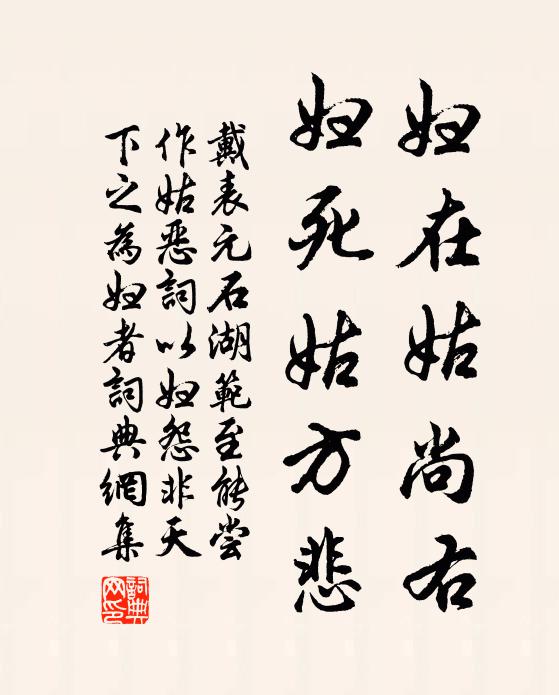 妇在姑尚右
妇死姑方悲
戴表元石湖範至能尝
作姑恶詞以妇怨非天
下之為妇者詞典網集
詞典網印